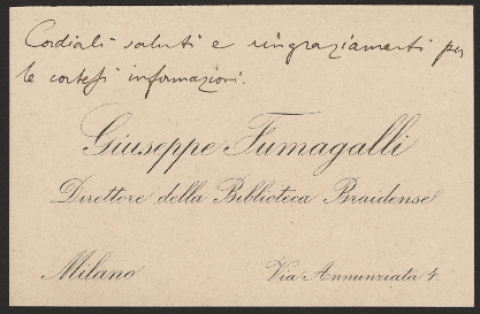 Cordiali saluti e ringraziamenti per
le cortesi informazioni.
Giuseppe Fumagalli
Direttore della Biblioteca Braidense
Milano
Via Annunziata 4.